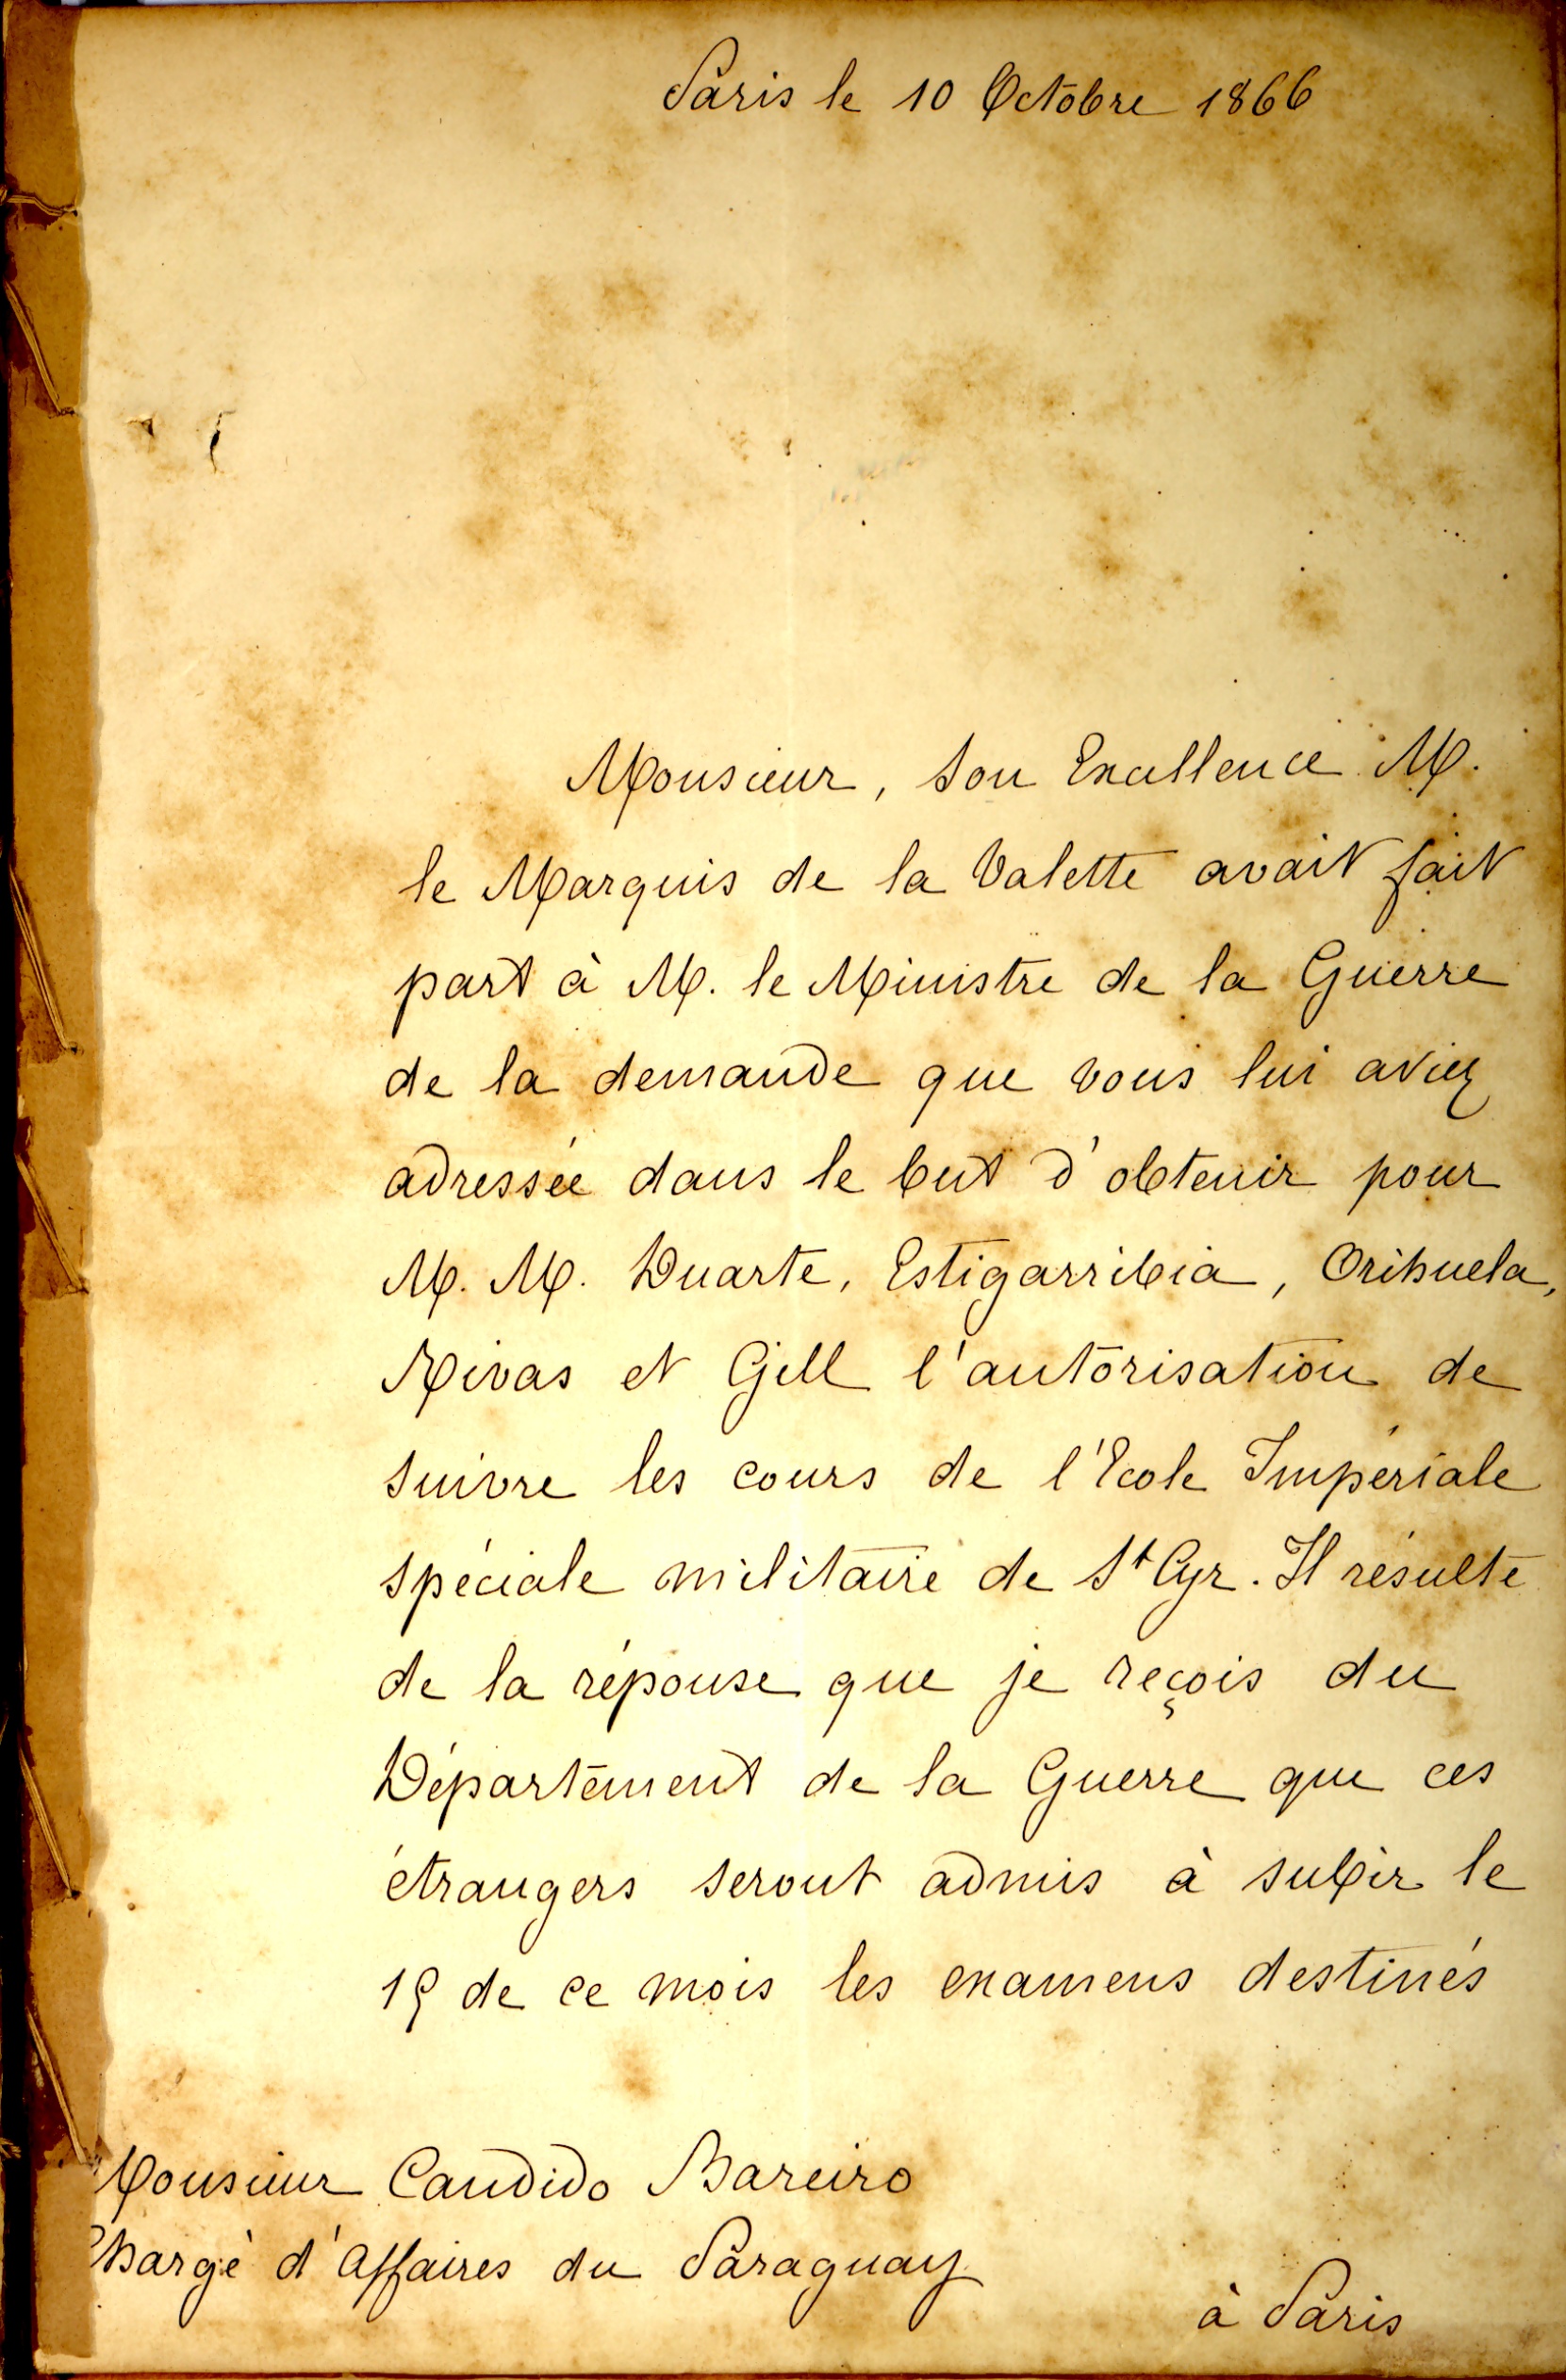 Paris le 10 Octobre 1866
Monsieur, Son Excellence M.
le Marquis de la Valette avait fait
part à M. le Ministre de la Guerre
de la demande que vous lui aviez
adressée dans le but d'obtenir pour
M. M. Duarte, Estigarribia, Orihuela,
Rivas et Gill l'autorisation de
suivre les cours de l'Ecole Impériale
spéciale militaire de St Cyr. Il résulte
de la réponse que je reçois du
Département de la Guerre que ces
étrangers seront admis à subir le
15 de ce mois les examens destinés
Monsieur Candido Bareiro
Chargé d'Affaires du Paraguay
à Paris